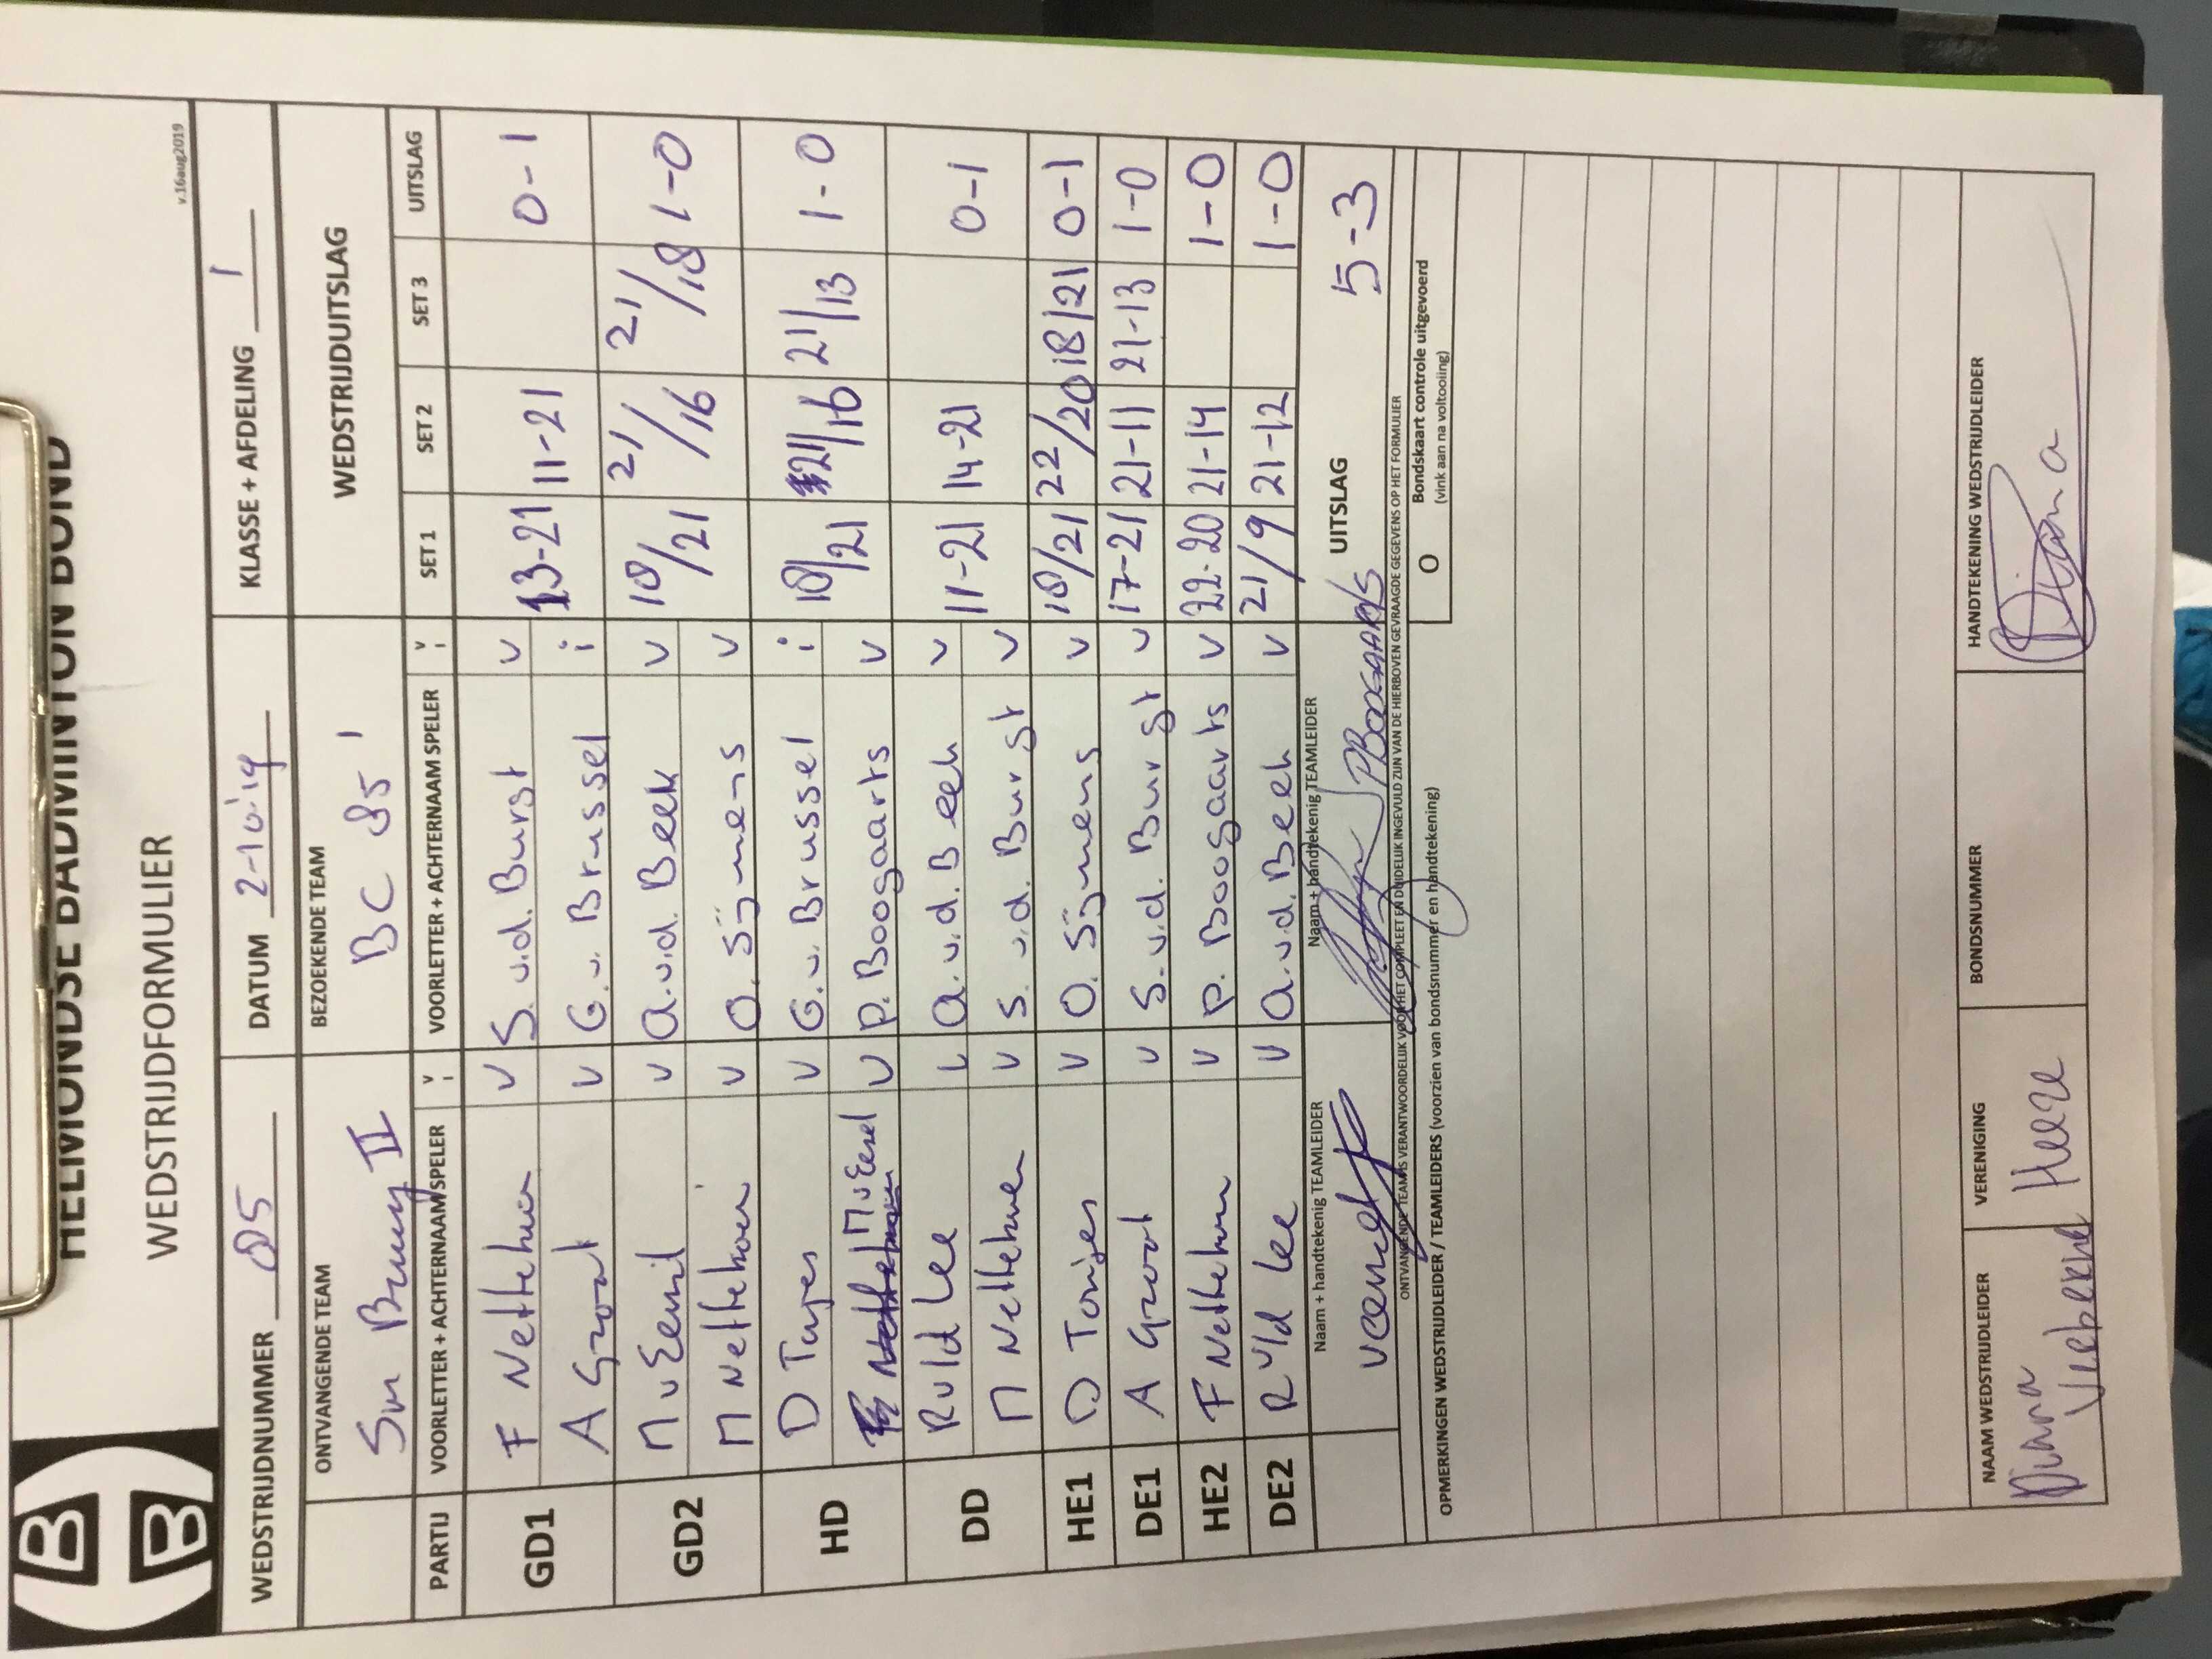 HELMONDSE BADMINTON BOND
WEDSTRIJDFORMULIER
v.16aug2019
WEDSTRIJDNUMMER 85 DATUM 2-10-'19 KLASSE + AFDELING 1
ONTVANGENDE TEAM BEZOEKENDE TEAM WEDSTRIJDUITSLAG
II BC 85 1
PARTIJ VOORLETTER + ACHTERNAAM SPELER V i VOORLETTER + ACHTERNAAM SPELER V i SET 1 SET 2 SET 3 UITSLAG
GD1 F Nettekoven V S. v.d. Burgt V 13-21 11-21 0-1
A Groot V G. v. Brussel i
GD2 V A. v.d. Beek V 18/21 21/16 21/18 1-0
M Nettekoven V O. Sijmens V
HD D Tonjes V G. v. Brussel i 18/21 21/16 21/13 1-0
V P. Boogaarts V
DD R vld Lee V A. v.d. Beek V 11-21 14-21 0-1
M Nettekoven V S. v.d. Burgt V
HE1 D Tonjes V O. Sijmens V 18/21 22/20 18/21 0-1
DE1 A Groot V S. v.d. Burgt V 17-21 21-11 21-13 1-0
HE2 F Nettekoven V P. Boogaarts V 22-20 21-14 1-0
DE2 R vld Lee V A. v.d. Beek V 21/9 21-12 1-0
Naam + handtekenig TEAMLEIDER Naam + handtekenig TEAMLEIDER UITSLAG 5-3
P BOOGAARTS
ONTVANGENDE TEAMS VERANTWOORDELIJK VOOR HET COMPLEET EN DUIDELIJK INGEVULD ZIJN VAN DE HIERBOVEN GEVRAAGDE GEGEVENS OP HET FORMULIER
OPMERKINGEN WEDSTRIJDLEIDER / TEAMLEIDERS (voorzien van bondsnummer en handtekening)
O Bondskaart controle uitgevoerd
(vink aan na voltooiing)
NAAM WEDSTRIJDLEIDER VERENIGING BONDSNUMMER HANDTEKENING WEDSTRIJDLEIDER
Diana Heeze Diana